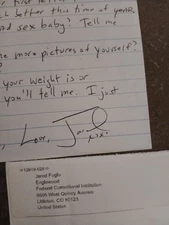 much better this time of year.
and sex baby? Tell me
more pictures of yourself?
your weight is or
you'll tell me. I just
Love,
xix.
Jared Fogle
Englewood
Federal Correctional Institution
9595 West Quincy Avenue
Littleton, CO 80123
United States